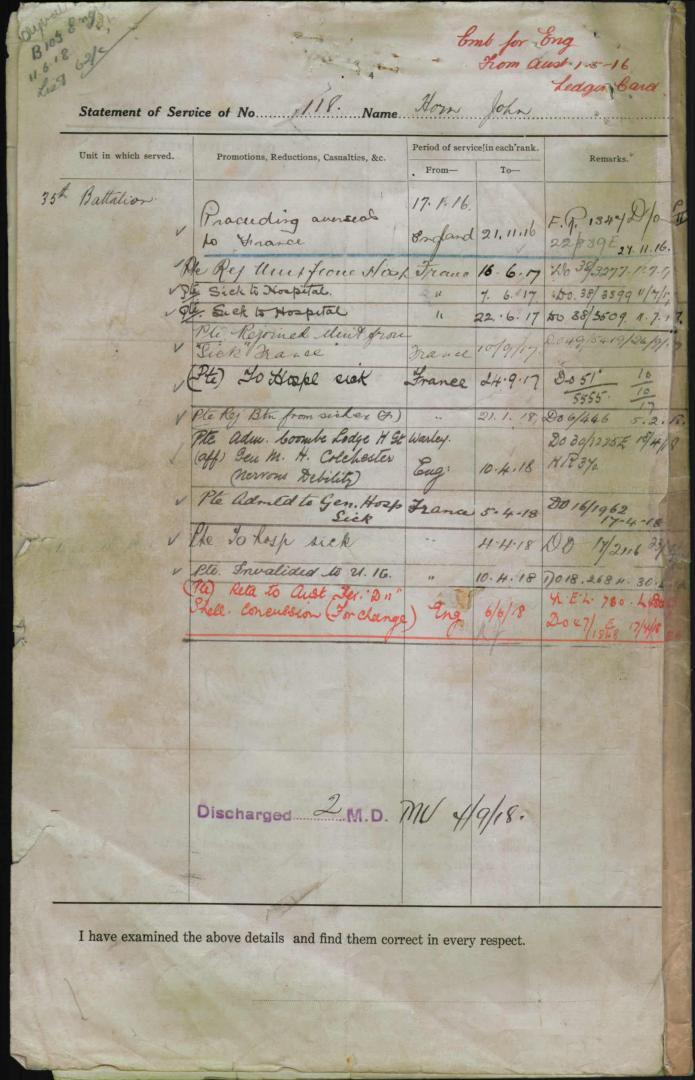 B 103 Eng
11.6.18
Emb for Eng
From Aust. 1-5-16
Ledger Card.
Statement of Service of No. 118. Name Horn John
Unit in which served. Promotions, Reductions, Casualties, &c. Period of service in each rank. Remarks.
From— To—
35th Battalion 17.1.16.
Proceeding overseas to France England 21.11.16 27.11.16.
Pte Rej Unit from Hosp France 15.6.17 DO 38/3277
Pte Sick to Hospital. " 7.6.17 DO. 38/3599 11/7/17
Pte Sick to Hospital " 22.6.17 DO 38/3609 11.7.17
Pte Rejoined Unit from
"Sick" France France 10/9/17
(Pte) To Hospl sick France 24.9.17 DO 51
5555 10/10/17
Pte Rej Btn from sick " 21.1.18 DO 6/446 5.2.18
Pte Adm. Coombe Lodge H Gt Warley.
(aff) Gen M. H. Colchester
(Nervous Debility) Eng: 10.4.18
Pte Admtd to Gen. Hosp France 5-4-18 DO 16/1962
Sick 17-4-18
Pte To hosp sick " 4-4-18 DO 17/2116
Pte. Invalided to U.K. " 10.4.18 DO 18.2684.
(Pte) Retd to Aust
Shell. Concussion (For change) Eng 6/6/18 DO 47/
Discharged 2 M.D. MU 4/9/18.
I have examined the above details and find them correct in every respect.